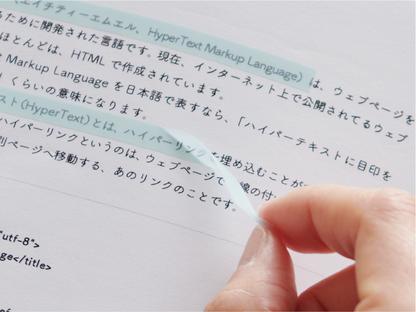 エイチティーエムエル、HyperText Markup Language）は、ウェブページを
ために開発された言語です。現在、インターネット上で公開されてるウェブ
ほとんどは、HTML で作成されています。
Markup Language を日本語で表すなら、「ハイパーテキストに目印を
くらいの意味になります。
スト(HyperText)とは、ハイパーリンクを埋め込むことが
ハイパーリンクというのは、ウェブページで 線の付
別ページへ移動する、あのリンクのことです。
"utf-8">
ge</title>